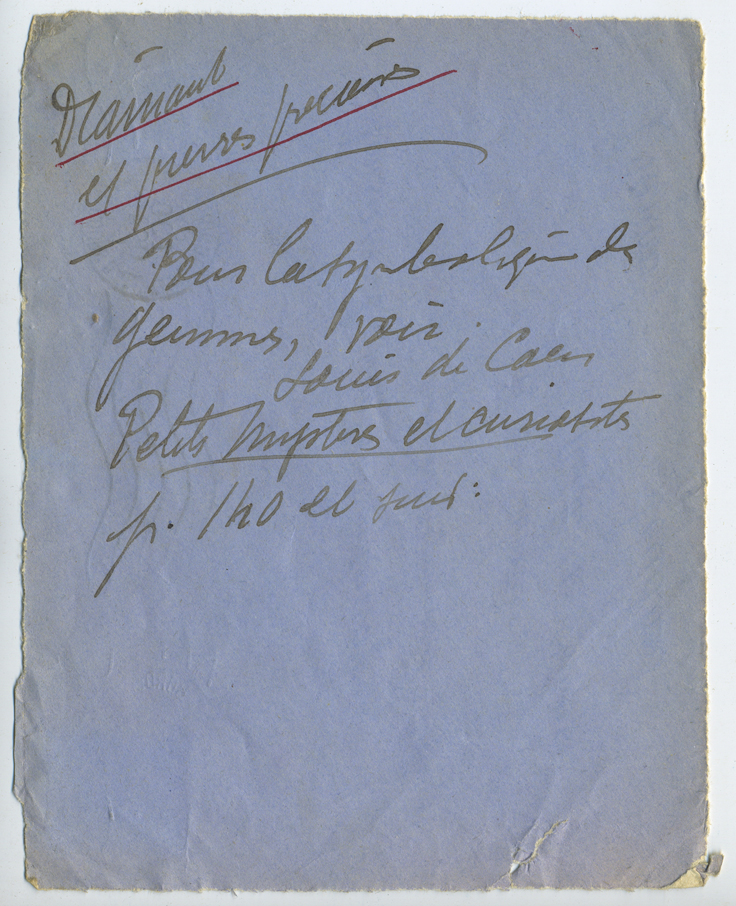 Diamant
et pierres précieuses
Pour la symbolique des
gemmes, voir
Louis de Caen
Petits Mystères et curiosités
p. 140 et suiv.